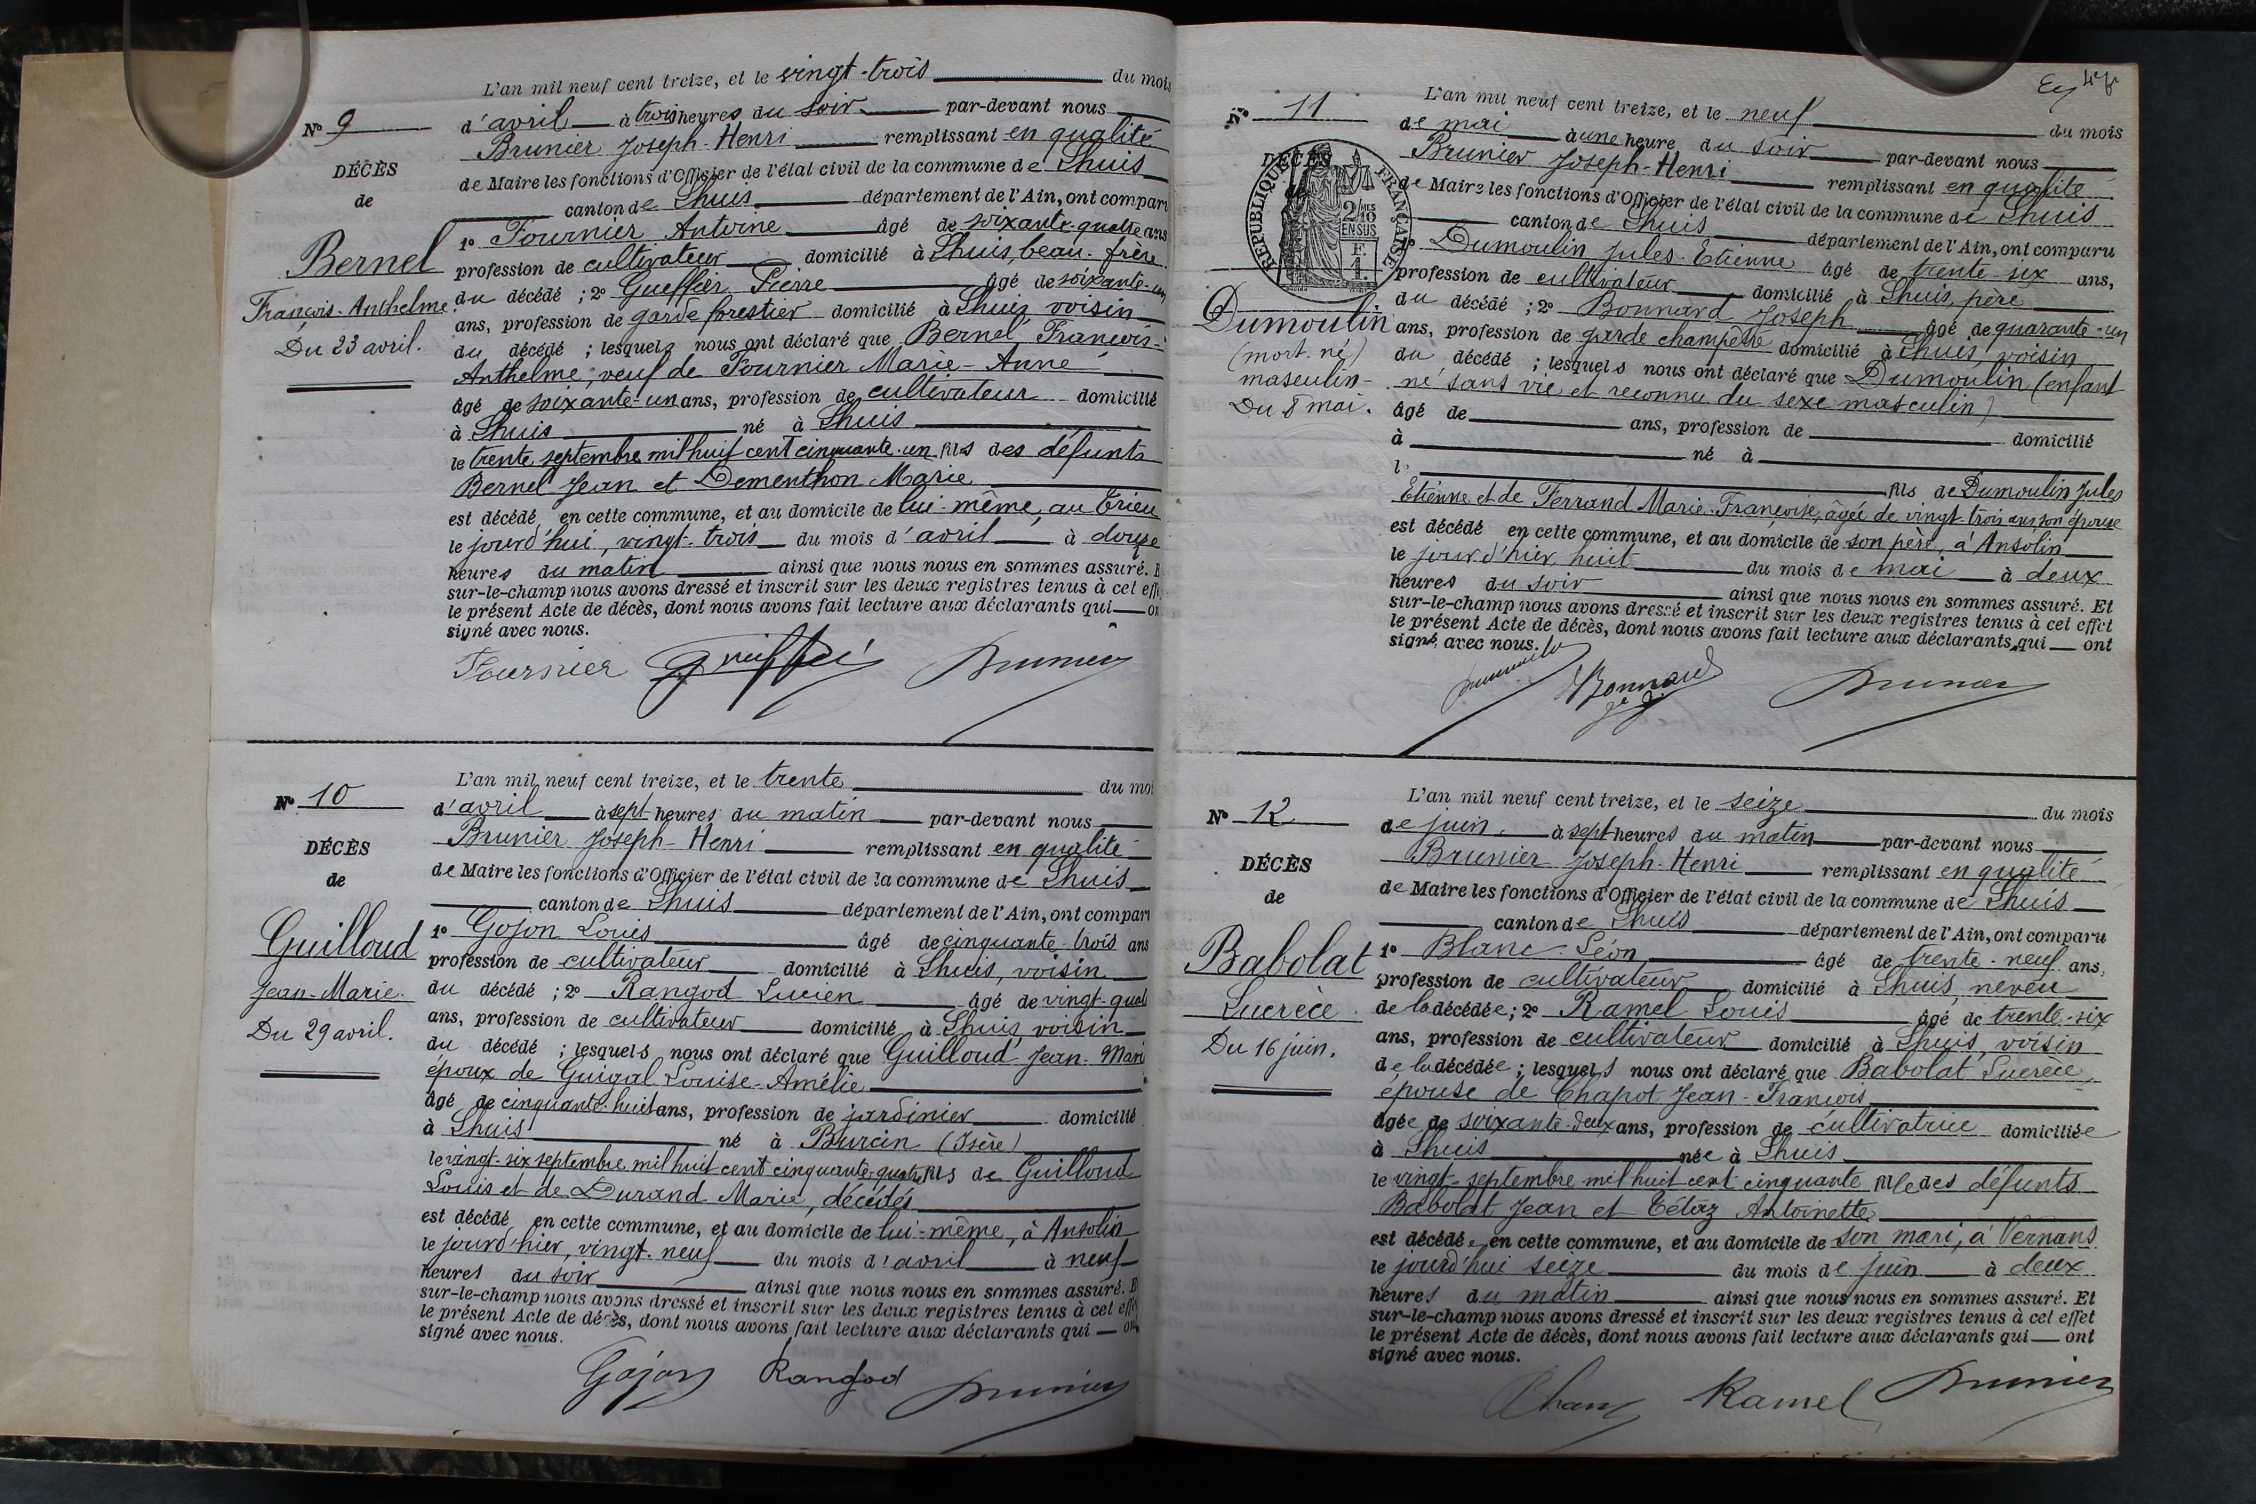 L'an mil neuf cent treize, et le vingt-trois du mois
d'avril à trois heures du soir par-devant nous
Brunier Joseph-Henri remplissant en qualité
de Maire les fonctions d'Officier de l'état civil de la commune de Lhuis
canton de Lhuis département de l'Ain, ont comparu
1° Fournier Antoine âgé de soixante-quatre ans
profession de cultivateur domicilié à Lhuis, beau-frère
du décédé ; 2° Gueffier Pierre âgé de soixante-un
ans, profession de garde forestier domicilié à Lhuis, voisin
du décédé ; lesquels nous ont déclaré que Bernel, François-
Anthelme, veuf de Fournier Marie-Anne
âgé de soixante-un ans, profession de cultivateur domicilié
à Lhuis né à Lhuis
le trente septembre mil huit cent cinquante-un fils des défunts
Bernel Jean et Dementhon Marie
est décédé en cette commune, et au domicile de lui-même, au Crieu
le jourd'hui, vingt-trois du mois d'avril à douze
heures du matin ainsi que nous nous en sommes assuré. E
sur-le-champ nous avons dressé et inscrit sur les deux registres tenus à cet effe
le présent Acte de décès, dont nous avons fait lecture aux déclarants qui on
signé avec nous.
Fournier Brunier
N° 9
DÉCÈS
de
Bernel
François-Anthelme
Du 23 avril.
L'an mil neuf cent treize, et le trente du moi
d'avril à sept heures du matin par-devant nous
Brunier Joseph-Henri remplissant en qualité
de Maire les fonctions d'Officier de l'état civil de la commune de Lhuis
canton de Lhuis département de l'Ain, ont comparu
1° Gojon Louis âgé de cinquante-trois ans
profession de cultivateur domicilié à Lhuis, voisin
du décédé ; 2° Rangod Lucien âgé de vingt-quat
ans, profession de cultivateur domicilié à Lhuis, voisin
du décédé ; lesquels nous ont déclaré que Guilloud Jean-Mari
époux de Guigal Louise-Amélie
âgé de cinquante-huit ans, profession de jardinier domicilié
à Lhuis né à Burcin (Isère)
le vingt-six septembre mil huit cent cinquante-quatre fils de Guilloud
Louis et de Durand Marie, décédés
est décédé en cette commune, et au domicile de lui-même, à Ansolin
le jourd'hier, vingt-neuf du mois d'avril à neuf
heures du soir ainsi que nous nous en sommes assuré. E
sur-le-champ nous avons dressé et inscrit sur les deux registres tenus à cet effe
le présent Acte de décès, dont nous avons fait lecture aux déclarants qui on
signé avec nous.
Gojon Rangod Brunier
N° 10
DÉCÈS
de
Guilloud
Jean-Marie.
Du 29 avril.
L'an mil neuf cent treize, et le neuf du mois
de mai à une heure du soir par-devant nous
Brunier Joseph-Henri remplissant en qualité
de Maire les fonctions d'Officier de l'état civil de la commune de Lhuis
canton de Lhuis département de l'Ain, ont comparu
Dumoulin Jules-Etienne âgé de trente-six ans,
profession de cultivateur domicilié à Lhuis, père
du décédé ; 2° Bonnard Joseph âgé de quarante-un
ans, profession de garde champêtre domicilié à Lhuis, voisin,
du décédé ; lesquels nous ont déclaré que Dumoulin (enfant
né sans vie et reconnu du sexe masculin)
âgé de ans, profession de domicilié
à né à
le fils de Dumoulin Jules
Etienne et de Ferrand Marie-Françoise, âgée de vingt-trois ans, son épouse
est décédé en cette commune, et au domicile de son père, à Ansolin
le jourd'hier, huit du mois de mai à deux
heures du soir ainsi que nous nous en sommes assuré. Et
sur-le-champ nous avons dressé et inscrit sur les deux registres tenus à cet effet
le présent Acte de décès, dont nous avons fait lecture aux déclarants, qui ont
signé avec nous.
Dumoulin Bonnard Brunier
N° 11
DÉCÈS
de
RÉPUBLIQUE FRANÇAISE
2/10 MES
EN SUS
F.
1.
Dumoulin
(mort-né)
masculin-
Du 8 mai.
L'an mil neuf cent treize, et le seize du mois
de juin à sept heures du matin par-devant nous
Brunier Joseph-Henri remplissant en qualité
de Maire les fonctions d'Officier de l'état civil de la commune de Lhuis
canton de Lhuis département de l'Ain, ont comparu
1° Blanc Léon âgé de trente-neuf ans,
profession de cultivateur domicilié à Lhuis, neveu
de la décédée ; 2° Ramel Louis âgé de trente-six
ans, profession de cultivateur domicilié à Lhuis, voisin
de la décédée ; lesquels nous ont déclaré que Babolat Lucrèce
épouse de Chapot Jean-François
âgée de soixante-deux ans, profession de cultivatrice domiciliée
à Lhuis née à Lhuis
le vingt septembre mil huit cent cinquante fille des défunts
Babolat Jean et Tétaz Antoinette
est décédée en cette commune, et au domicile de son mari, à Vernans
le jourd'hui seize du mois de juin à deux
heures du matin ainsi que nous nous en sommes assuré. Et
sur-le-champ nous avons dressé et inscrit sur les deux registres tenus à cet effet
le présent Acte de décès, dont nous avons fait lecture aux déclarants qui ont
signé avec nous.
Ramel Brunier
N° 12
DÉCÈS
de
Babolat
Lucrèce
Du 16 juin.